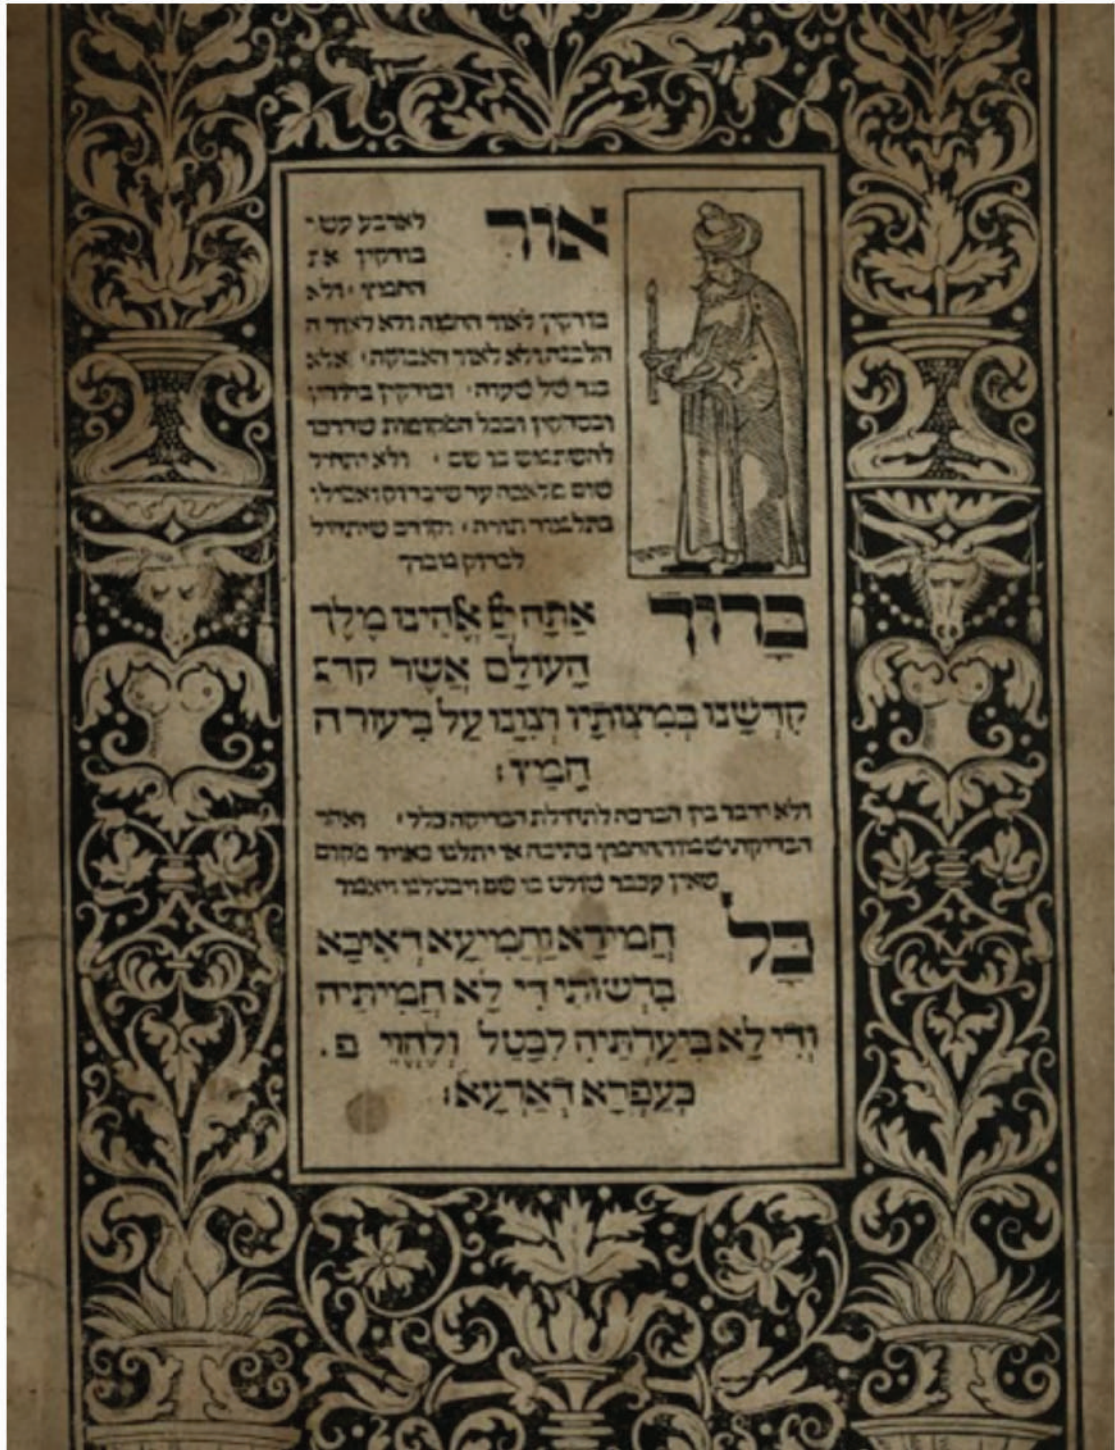 אור לארבע עשר
בודקין את
החמץ ולא
בודקין לאור החמה ולא לאור ה
הלבנה ולא לאור האבוקה אלא
בנר של שעוה ובודקין בחורין
ובסדקין ובכל המקומות שדרכו
להשתמש בו שם ולא יתחיל
שום מלאכה עד שיבדוק ואפילו
בתלמוד תורה וקודם שיתחיל
לבדוק מברך
בָּרוּךְ אַתָּה יְיָ אֱלֹהֵינוּ מֶלֶךְ
הָעוֹלָם אֲשֶׁר קד
קִדְּשָׁנוּ בְּמִצְוֹתָיו וְצִוָּנוּ עַל בִּיעוּר ה
חָמֵץ׃
ולא ידבר בין הברכה לתחילת הבדיקה כלל ואחר
הבדיקה ישמור החמץ בתיבה או יתלנו באויר מקום
שאין עכבר שולט בו שם ויבטלנו ויאמר
כָּל חֲמִירָא וַחֲמִיעָא דְּאִיכָּא
בִרְשׁוּתִי דִּי לָא חֲמִיתֵיהּ
וְדִי לָא בִּיעַרְתֵּיהּ לִבָּטֵל וְלֶהֱוֵי פ.
כְּעַפְרָא דְאַרְעָא׃